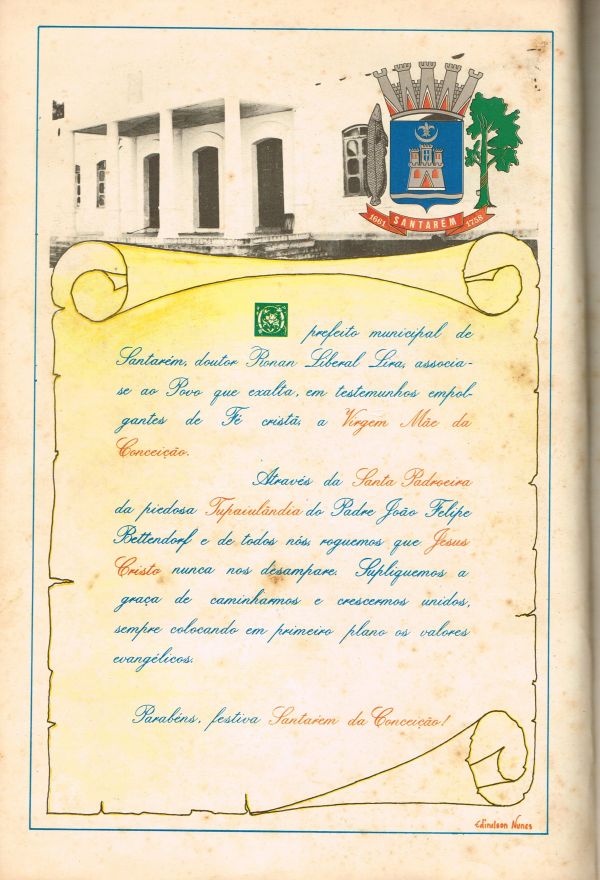 1661 SANTARÉM 1758
O prefeito municipal de
Santarém, doutor Ronan Liberal Lira, associa-
se ao Povo que exalta, em testemunhos empol-
gantes de Fé cristã, a Virgem Mãe da
Conceição.
Através da Santa Padroeira
da piedosa Tupaiulândia do Padre João Felipe
Bettendorf e de todos nós, roguemos que Jesus
Cristo nunca nos desampare. Supliquemos a
graça de caminharmos e crescermos unidos,
sempre colocando em primeiro plano os valores
evangélicos.
Parabéns, festiva Santarém da Conceição!
Edinelson Nunes